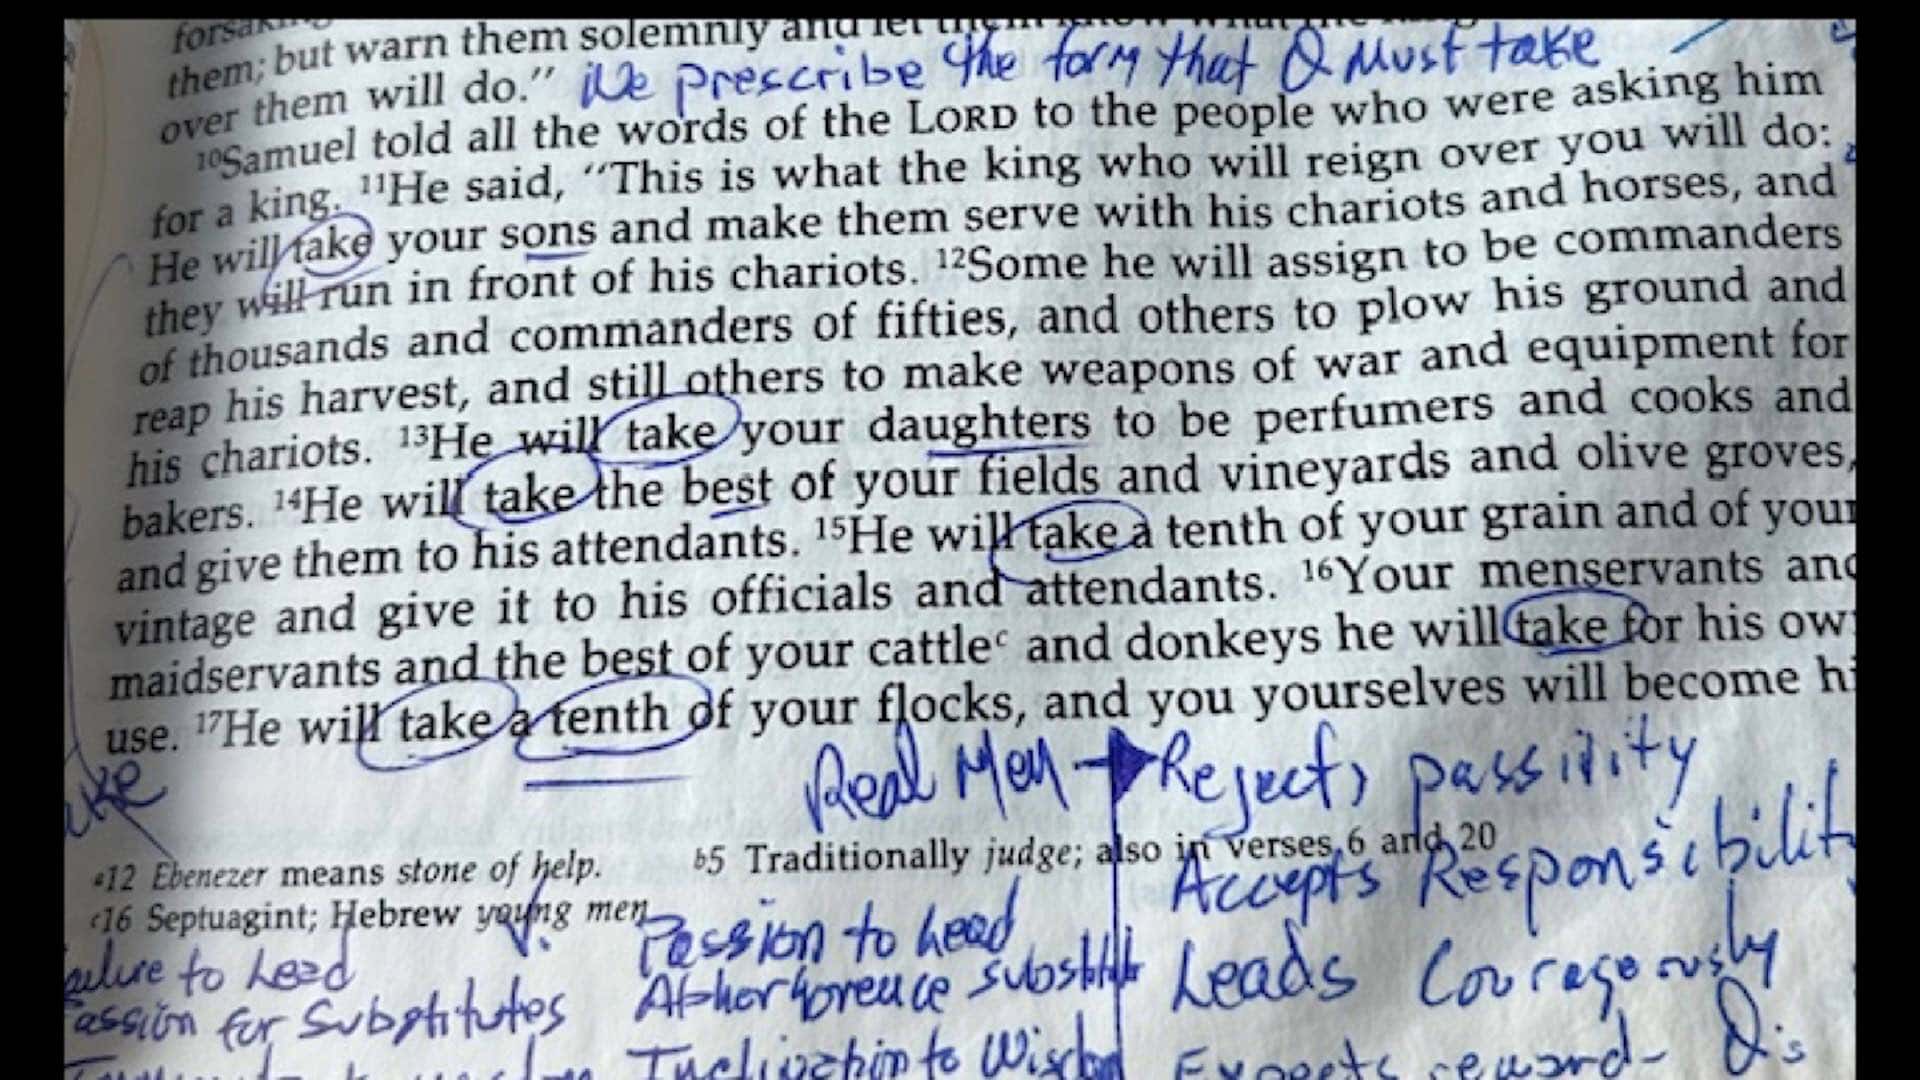 them; but warn them solemnly and let them know what the
over them will do." We prescribe the form that Q Must take
¹⁰Samuel told all the words of the LORD to the people who were asking him
for a king. ¹¹He said, "This is what the king who will reign over you will do:
He will take your sons and make them serve with his chariots and horses, and
they will run in front of his chariots. ¹²Some he will assign to be commanders
of thousands and commanders of fifties, and others to plow his ground and
reap his harvest, and still others to make weapons of war and equipment for
his chariots. ¹³He will take your daughters to be perfumers and cooks and
bakers. ¹⁴He will take the best of your fields and vineyards and olive groves,
and give them to his attendants. ¹⁵He will take a tenth of your grain and of your
vintage and give it to his officials and attendants. ¹⁶Your menservants and
maidservants and the best of your cattleᶜ and donkeys he will take for his own
use. ¹⁷He will take a tenth of your flocks, and you yourselves will become hi
Real Men → Rejects passivity
ᵃ12 Ebenezer means stone of help. ᵇ5 Traditionally judge; also in verses 6 and 20
Accepts Responsibilit
ᶜ16 Septuagint; Hebrew young men
ailure to Lead v. Passion to Lead Leads Courageously
assion for Substitutes Abhorhorence substitute
Inclination to Wisdom Expects reward - Q's